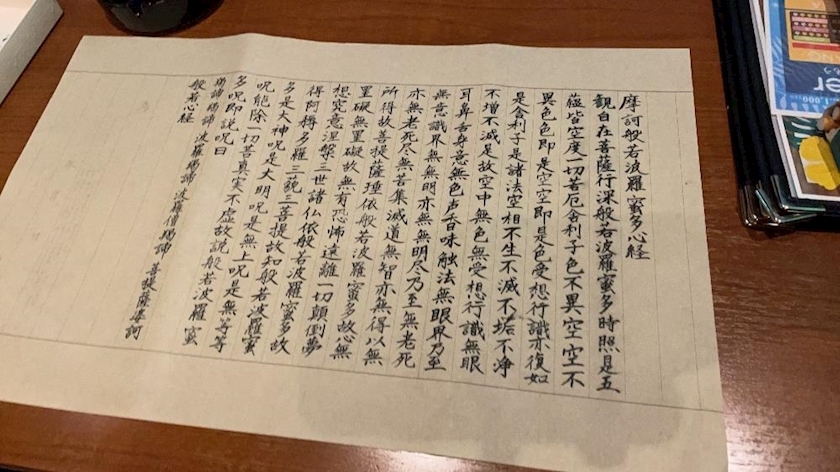 摩訶般若波羅蜜多心経
観自在菩薩行深般若波羅蜜多時照見五
蘊皆空度一切苦厄舎利子色不異空空不
異色色即是空空即是色受想行識亦復如
是舎利子是諸法空相不生不滅不垢不浄
不増不減是故空中無色無受想行識無眼
耳鼻舌身意無色声香味触法無眼界乃至
無意識界無無明亦無無明尽乃至無老死
亦無老死尽無苦集滅道無智亦無得以無
所得故菩提薩埵依般若波羅蜜多故心無
罣礙無罣礙故無有恐怖遠離一切顛倒夢
想究竟涅槃三世諸仏依般若波羅蜜多故
得阿耨多羅三藐三菩提故知般若波羅蜜
多是大神呪是大明呪是無上呪是無等等
呪能除一切苦真実不虚故説般若波羅蜜
多呪即説呪曰
羯諦 羯諦 波羅羯諦 波羅僧羯諦 菩提薩婆訶
般若心経